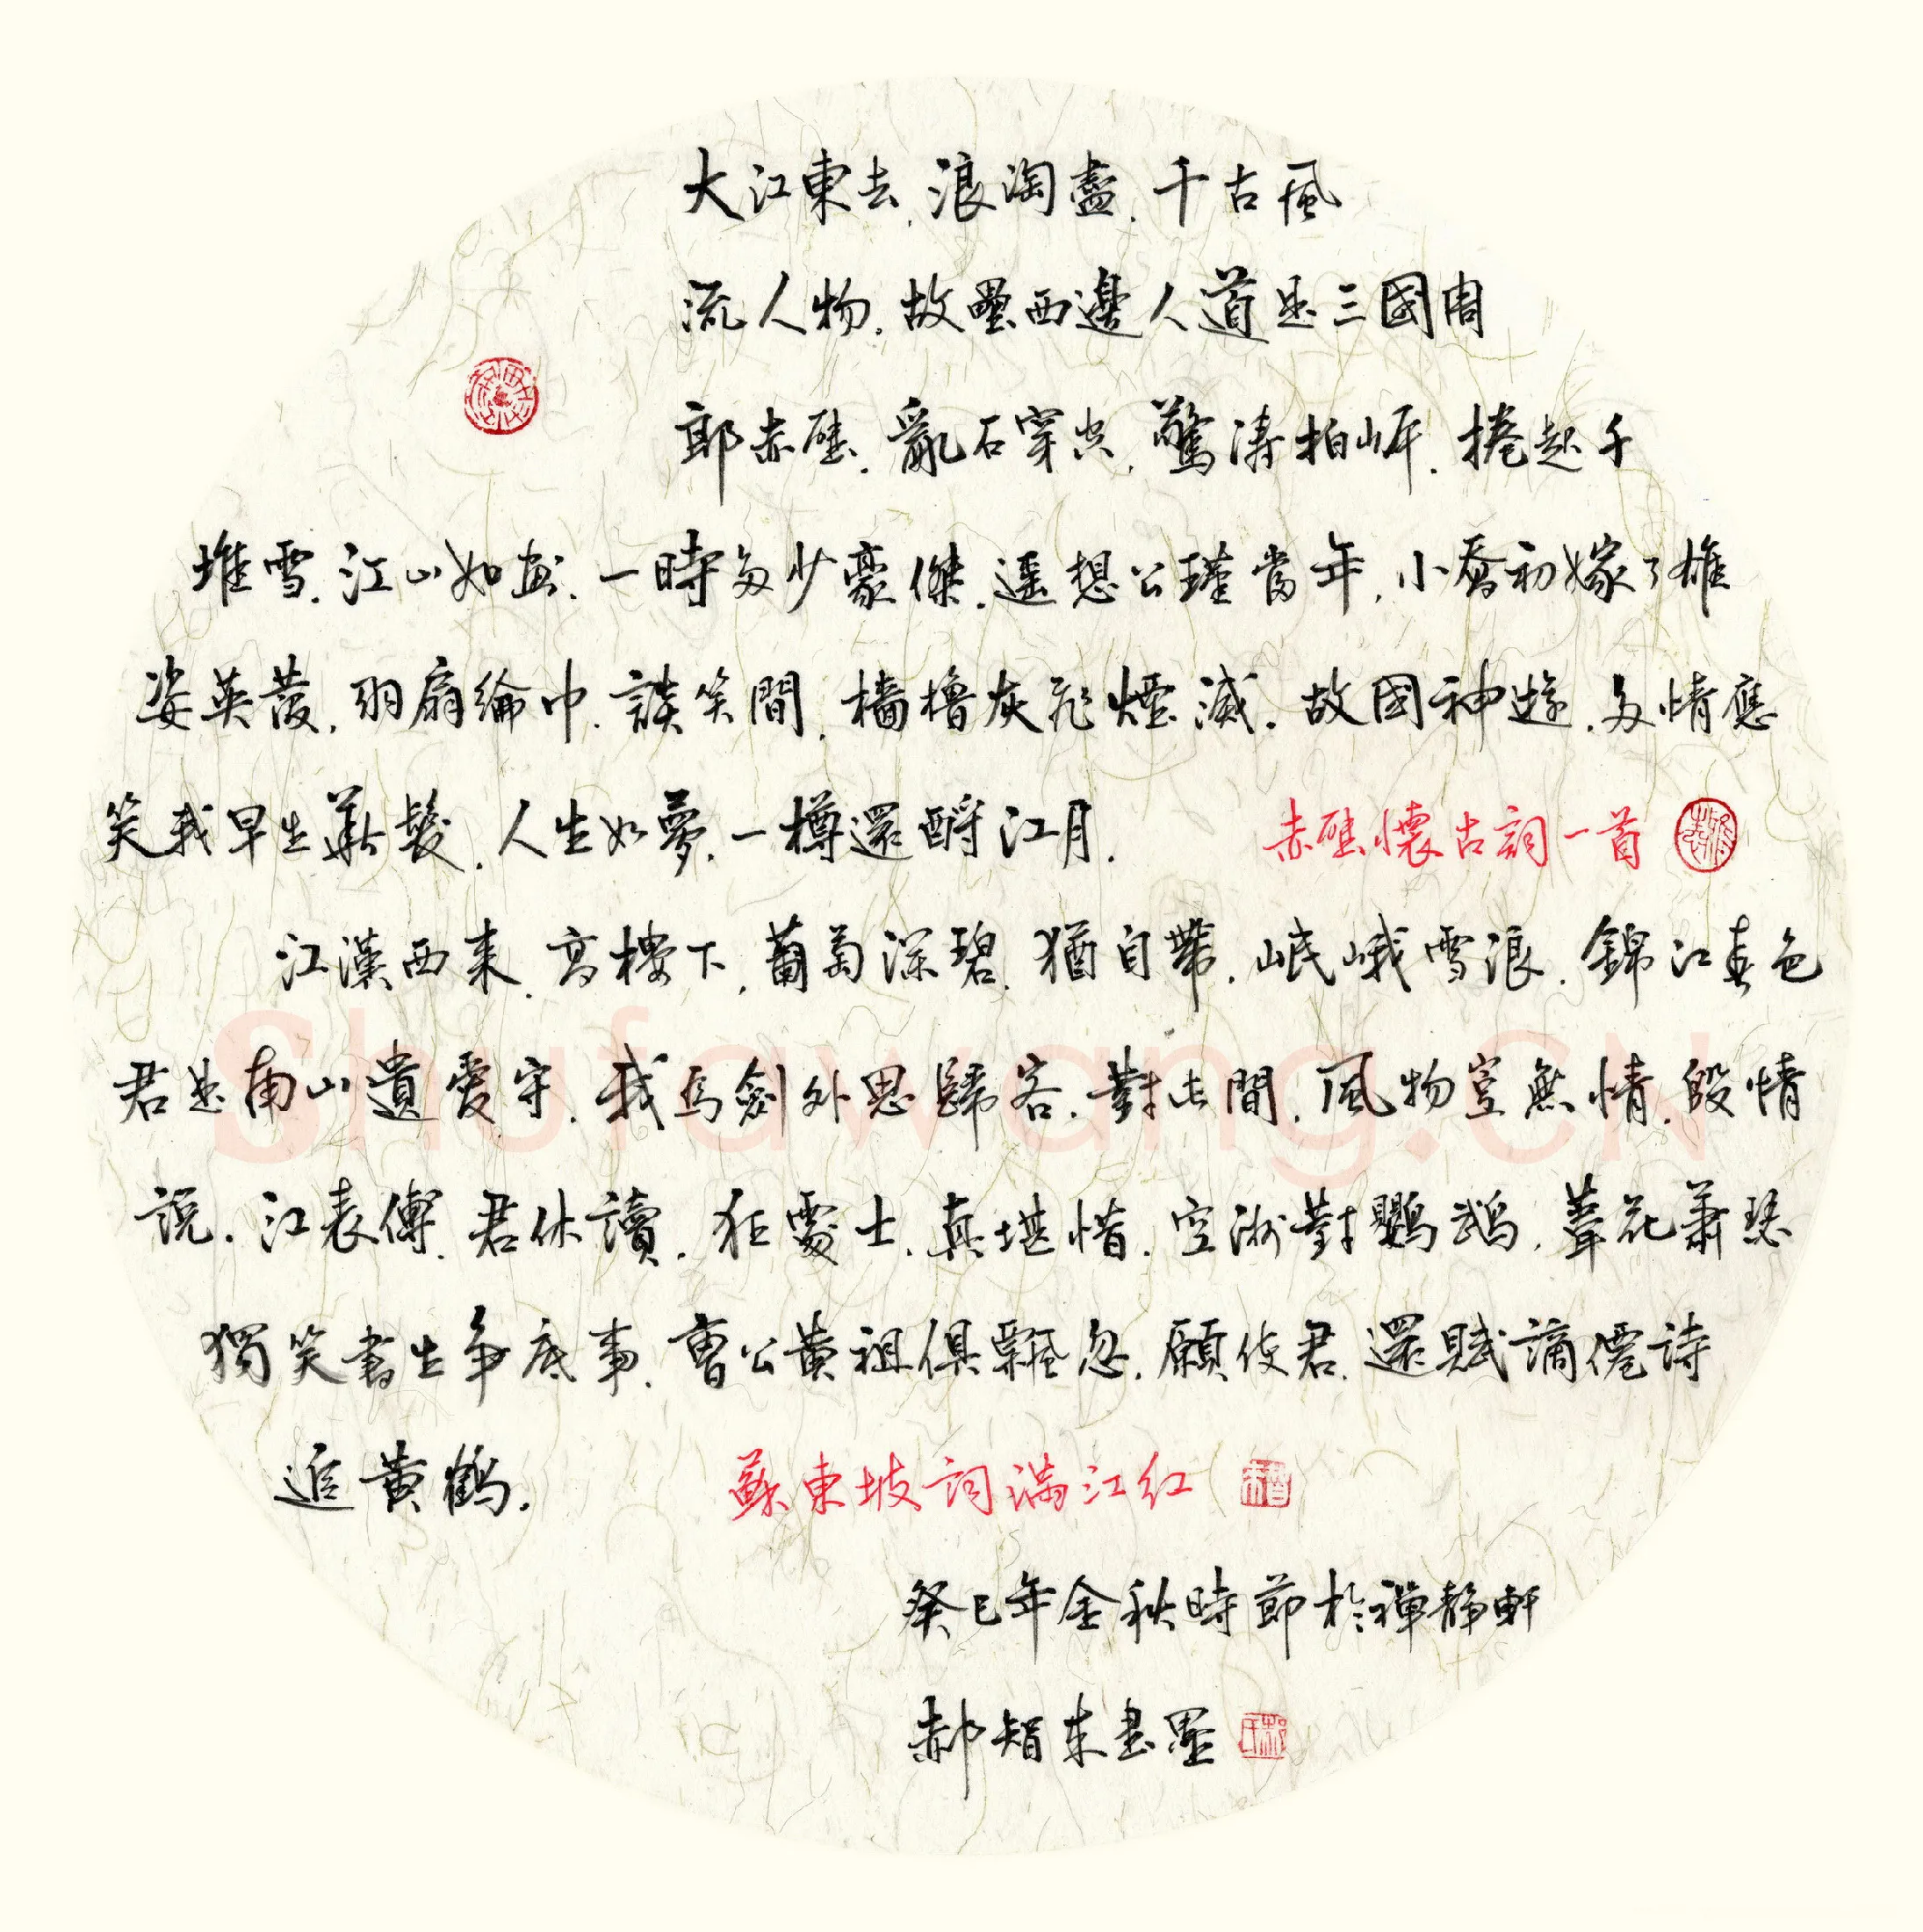 大江東去.浪淘盡.千古風
流人物.故壘西邊人道是三國周
郎赤壁.亂石穿空.驚濤拍岸.捲起千
堆雪.江山如畫.一時多少豪傑.遥想公瑾當年.小喬初嫁了雄
姿英發.羽扇綸巾.談笑間.檣櫓灰飛煙滅.故國神遊.多情應
笑我早生華髮.人生如夢.一樽還酹江月.
赤壁懷古詞一首
江漢西來.高樓下.葡萄深碧.猶自帶.岷峨雪浪.錦江春色
君是南山遺愛守.我爲劍外思歸客.對此間.風物豈無情.殷情
説.江表傳.君休讀.狂處士.真堪惜.空洲對鸚鵡.葦花蕭瑟
獨笑書生争底事.曹公黄祖俱飄忽.願使君.還賦謫僊詩
追黄鶴.
蘇東坡詞滿江红
癸巳年金秋時節於禪静軒
郝智朱書墨
Shufawang.CN